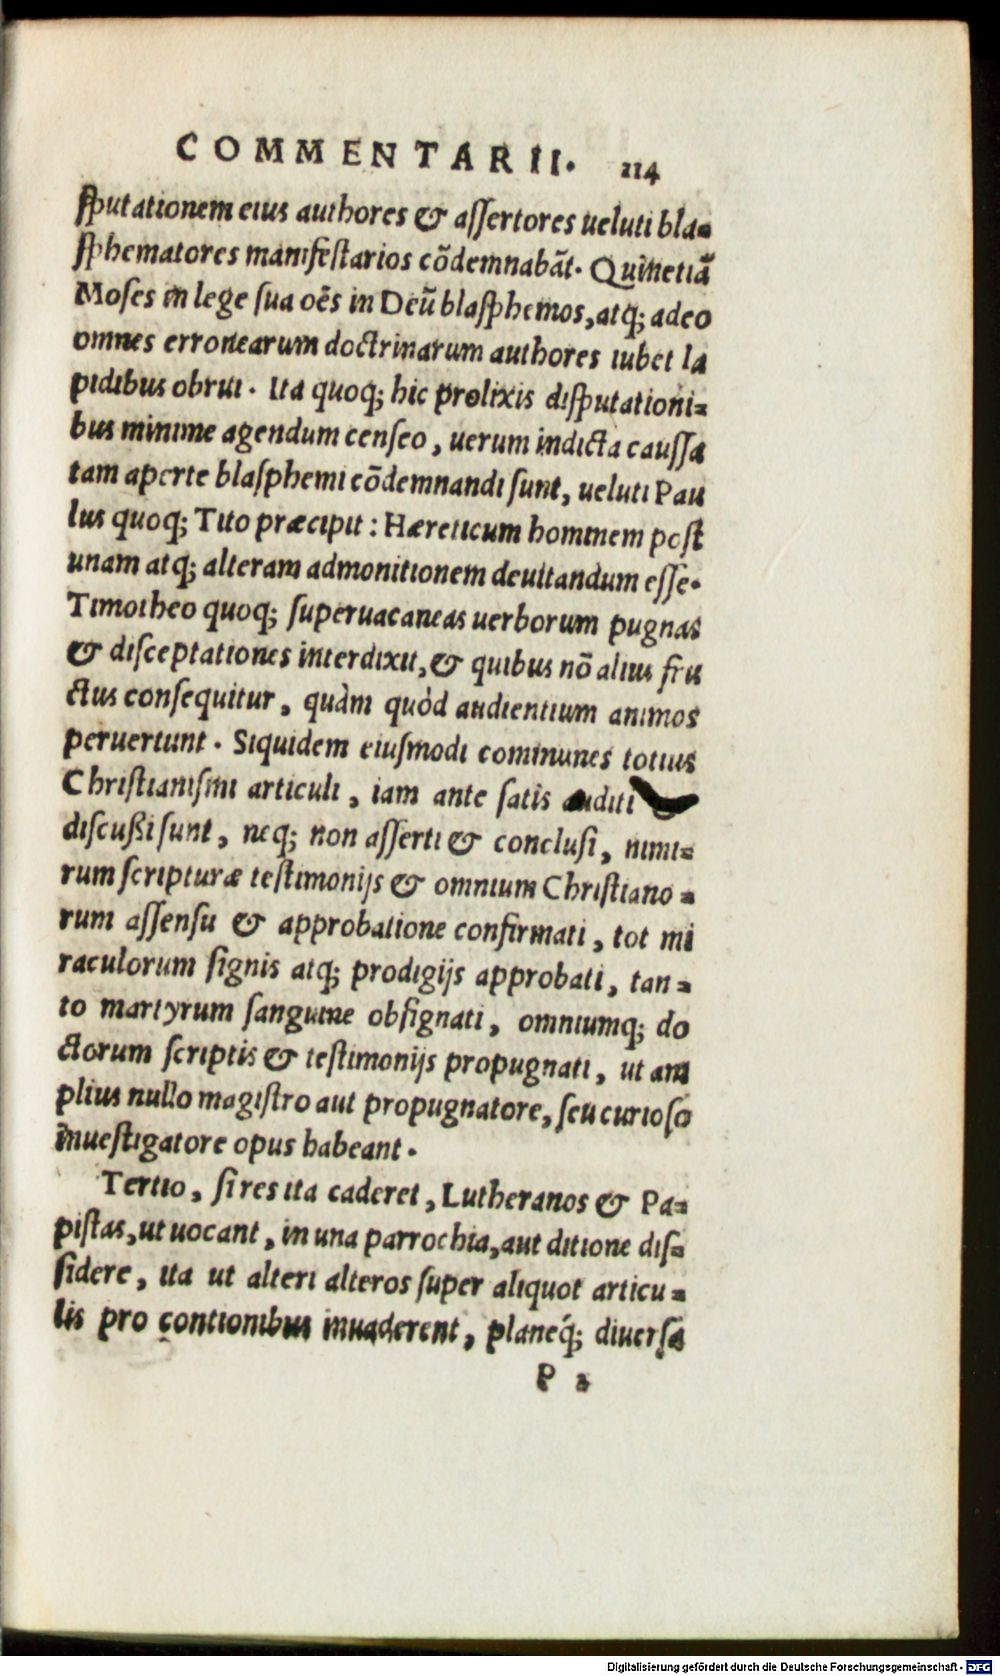 COMMENTARII. 114
sputationem eius authores & assertores ueluti bla=
sphematores manifestarios cõdemnabãt. Quinetiã
Moses in lege sua oẽs in Deũ blasphemos, atq; adeo
omnes erronearum doctrinarum authores iubet la
pidibus obrui. Ita quoq; hic prolixis disputationi=
bus minime agendum censeo, uerum indicta caussa
tam aperte blasphemi cõdemnandi sunt, ueluti Pau
lus quoq; Tito præcipit: Hæreticum hominem post
unam atq; alteram admonitionem deuitandum esse.
Timotheo quoq; superuacaneas uerborum pugnas
& disceptationes interdixit, & quibus nõ alius fru
ctus consequitur, quàm quòd audientium animos
peruertunt. Siquidem eiusmodi communes totius
Christianismi articuli, iam ante satis auditi
discußi sunt, neq; non asserti & conclusi, nimi=
rum scripturæ testimonijs & omnium Christiano=
rum assensu & approbatione confirmati, tot mi
raculorum signis atq; prodigijs approbati, tan=
to martyrum sanguine obsignati, omniumq; do
ctorum scriptis & testimonijs propugnati, ut am
plius nullo magistro aut propugnatore, seu curioso
inuestigatore opus habeant.
Tertio, si res ita caderet, Lutheranos & Pa=
pistas, ut uocant, in una parrochia, aut ditione dis=
sidere, ita ut alteri alteros super aliquot articu=
lis pro contionibus inuaderent, planeq́; diuersa
P 2
Digitalisierung gefördert durch die Deutsche Forschungsgemeinschaft - DFG